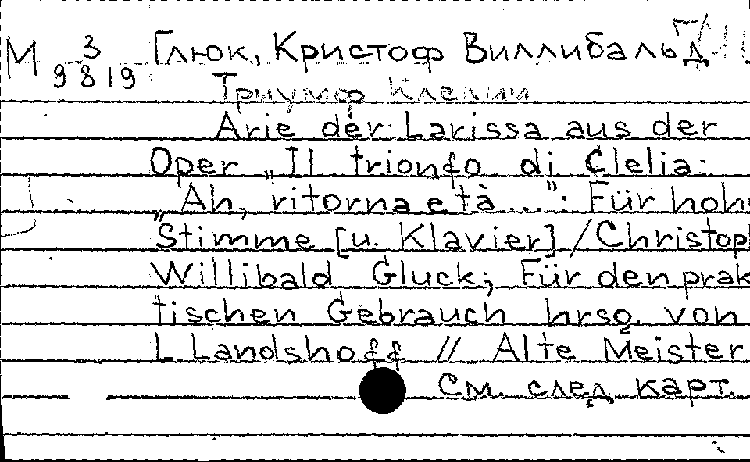 М 3 Глюк, Кристоф Виллибальд
9819 Триумф Клелии
Arie der Larissa aus der
Oper „Il trionfo di Clelia:
„Ah, ritorna età ...": Für hoh
Stimme [u. Klavier] / Christop
Willibald Gluck; Für den prak
tischen Gebrauch hrsg. von
L. Landshoff // Alte Meister
См. след. карт.